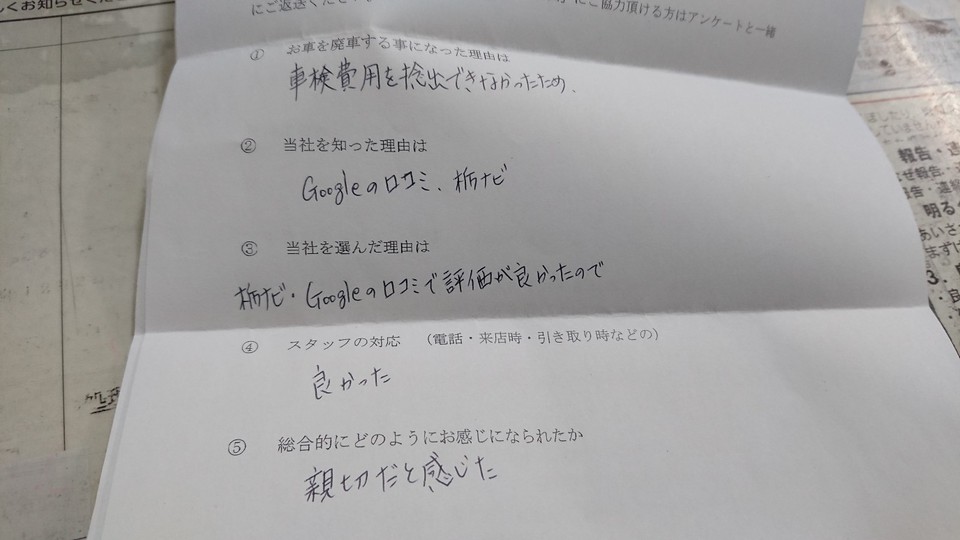 くお知らせくだ
にご返送くだ
にご協力頂ける方はアンケートと一緒
① お車を廃車する事になった理由は
車検費用を捻出できなかったため、
② 当社を知った理由は
Googleの口コミ、栃ナビ
③ 当社を選んだ理由は
栃ナビ・Googleの口コミで評価が良かったので
④ スタッフの対応 (電話・来店時・引き取り時などの)
良かった
⑤ 総合的にどのようにお感じになられたか
親切だと感じた
報告・
報告・
報告・連
明る
あいさ
まずは